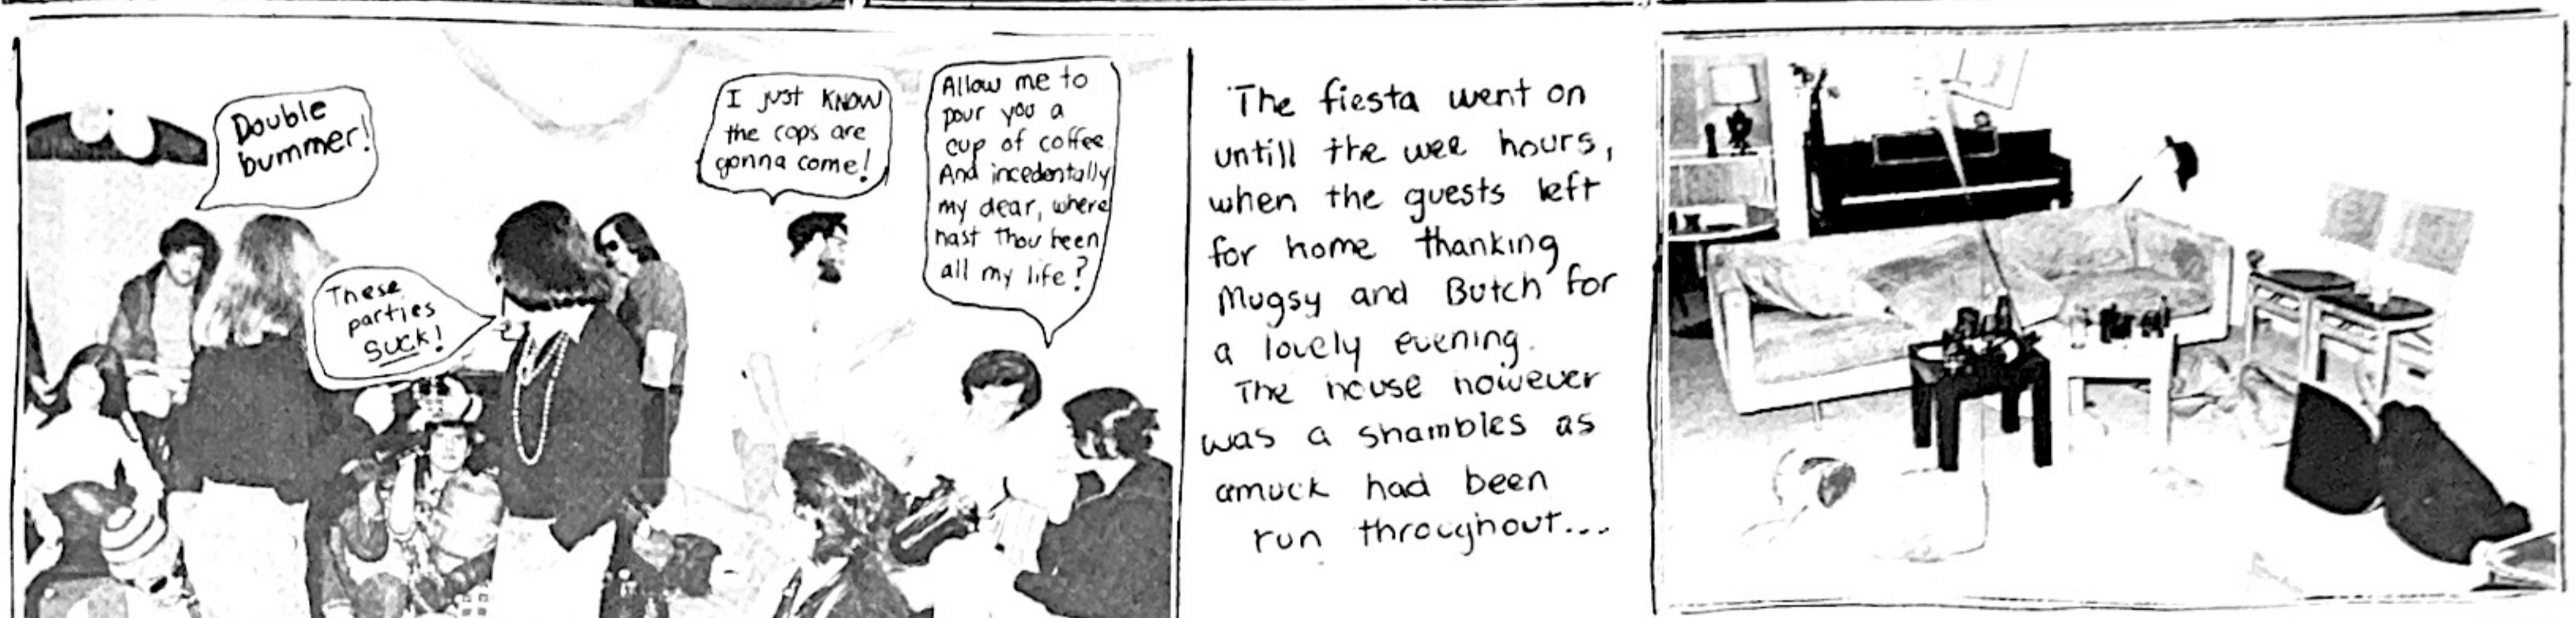 Double
bummer!
These
parties
SUCK!
I just KNOW
the cops are
gonna come!
Allow me to
pour you a
cup of coffee.
And incedentally
my dear, where
hast thou been
all my life?
The fiesta went on
untill the wee hours,
when the guests left
for home thanking
Mugsy and Butch for
a lovely evening.
The house however
was a shambles as
amuck had been
run throughout...